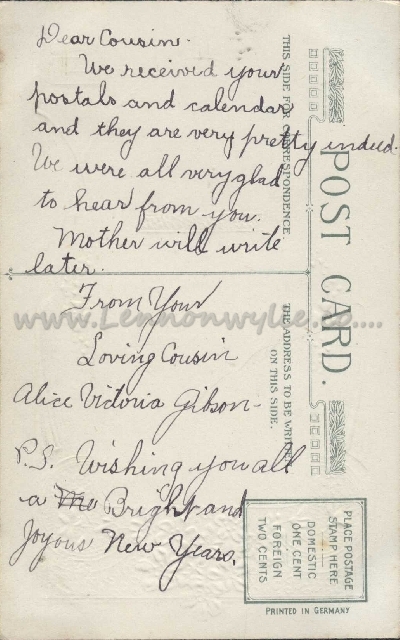 Dear Cousin.
We received your
postals and calendar
and they are very pretty indeed.
We were all very glad
to hear from you.
Mother will write
later.
From Your
Loving Cousin
Alice Victoria Gibson-
P.S. Wishing you all
a Bright and
Joyous New Years.
POST CARD.
THIS SIDE FOR CORRESPONDENCE
THE ADDRESS TO BE WRITTEN
ON THIS SIDE.
PLACE POSTAGE
STAMP HERE
DOMESTIC
ONE CENT
FOREIGN
TWO CENTS
PRINTED IN GERMANY